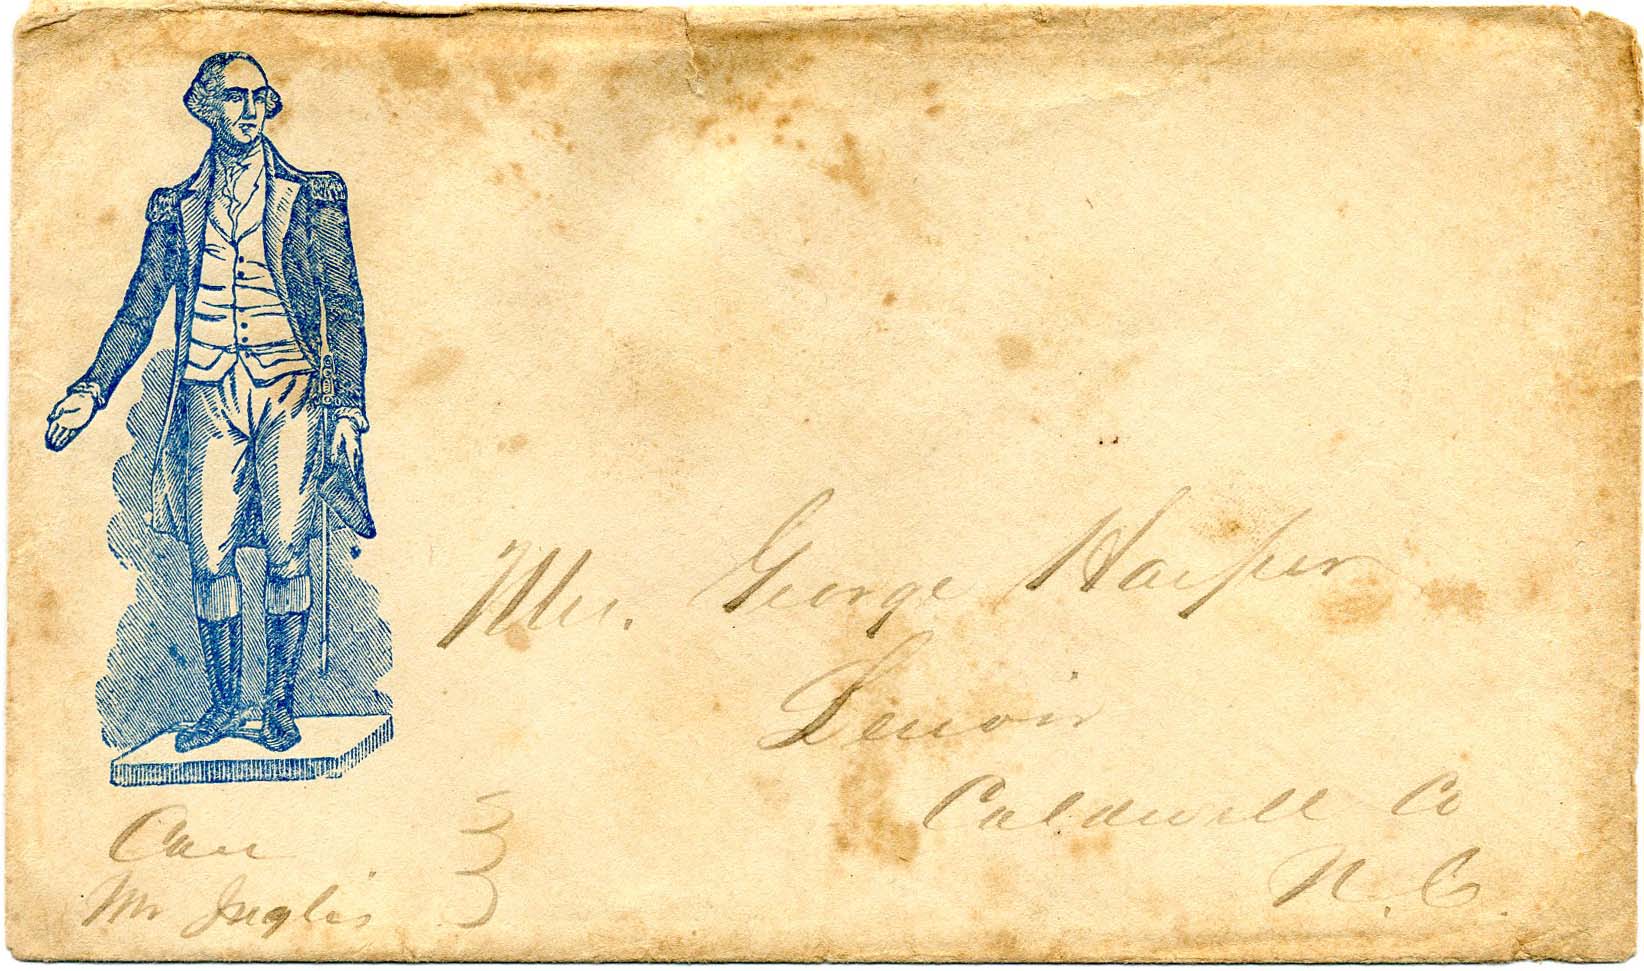 Mrs. George Harper
Lenoir
Caldwell Co
N. C.
Care }
Mr Inglis